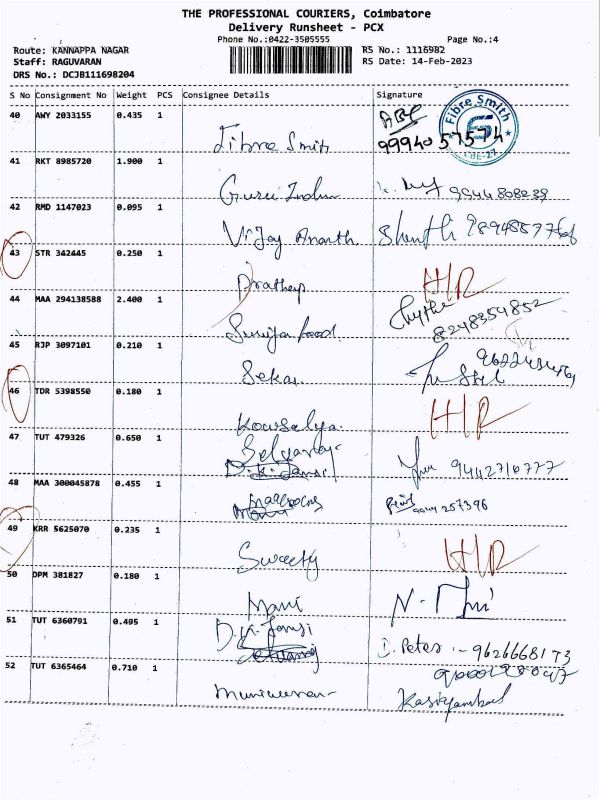 THE PROFESSIONAL COURIERS, Coimbatore
Delivery Runsheet - PCX
Phone No.:0422-3505555 Page No.:4
Route: KANNAPPA NAGAR RS No.: 1116982
Staff: RAGUVARAN RS Date: 14-Feb-2023
DRS No.: DCJB111698204
S No Consignment No Weight PCS Consignee Details Signature
40 AWY 2033155 0.435 1
Fibre Smith 99940 57574
Fibre Smith CBE-27
41 RKT 8985720 1.900 1
Guru Indun 9944808239
42 RMD 1147023 0.095 1
Vijay Ananth Shanthi
43 STR 342445 0.250 1
Prathap H/R
44 MAA 294138588 2.400 1
food 8248359852
45 RJP 3097101 0.210 1
Sekar
46 TDR 5398550 0.180 1
Kowsalya H/R
47 TUT 479326 0.650 1
Selvaraj 9442716777
48 MAA 300045878 0.455 1
257396
49 KRR 5625070 0.235 1
Sweety H/R
50 DPM 381827 0.180 1
Mani N.
51 TUT 6360791 0.495 1
D.K. Jansi D. Peter - 9626668173
52 TUT 6365464 0.710 1